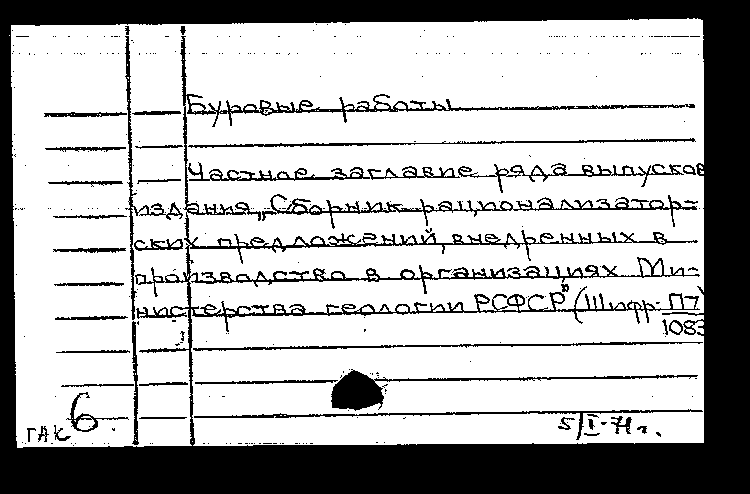 Буровые работы
Частное заглавие ряда выпусков
издания „Сборник рационализатор-
ских предложений, внедренных в
производство в организациях Ми-
нистерства геологии РСФСР" (Шифр: П7
1083
ГАК 6.
5/I-71 г.